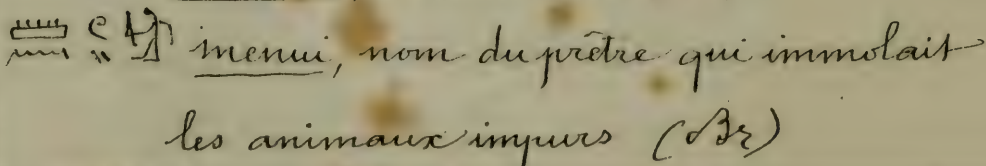 𓏠𓈖𓏲𓏭𓀜 menui, nom du prêtre qui immolait
les animaux impurs (Br)